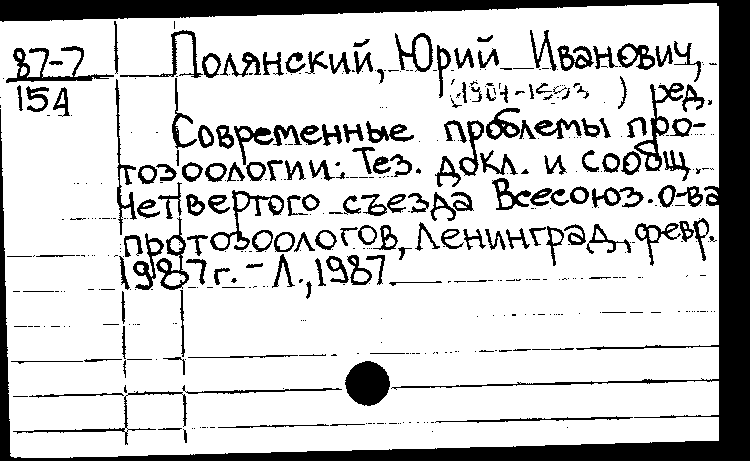 87-7
154
Полянский, Юрий Иванович,
(1904-1993) ред.
Современные проблемы про-
тозоологии: Тез. докл. и сообщ.
Четвертого съезда Всесоюз. о-ва
протозоологов, Ленинград, февр.
1987 г. - Л., 1987.